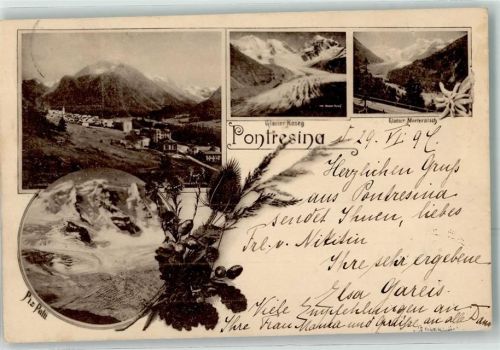 Glacier Roseg
Glacier Morteratsch
Pontresina
d. 29. VI. 97.
Herzlichen Gruss
aus Pontresina
sendet Ihnen, liebes
Frl. v. Nikitin
Ihre sehr ergebene
Elsa Gareis.
Viele Empfehlungen an
Ihre Frau Mama und Grüsse an alle
Piz Palü